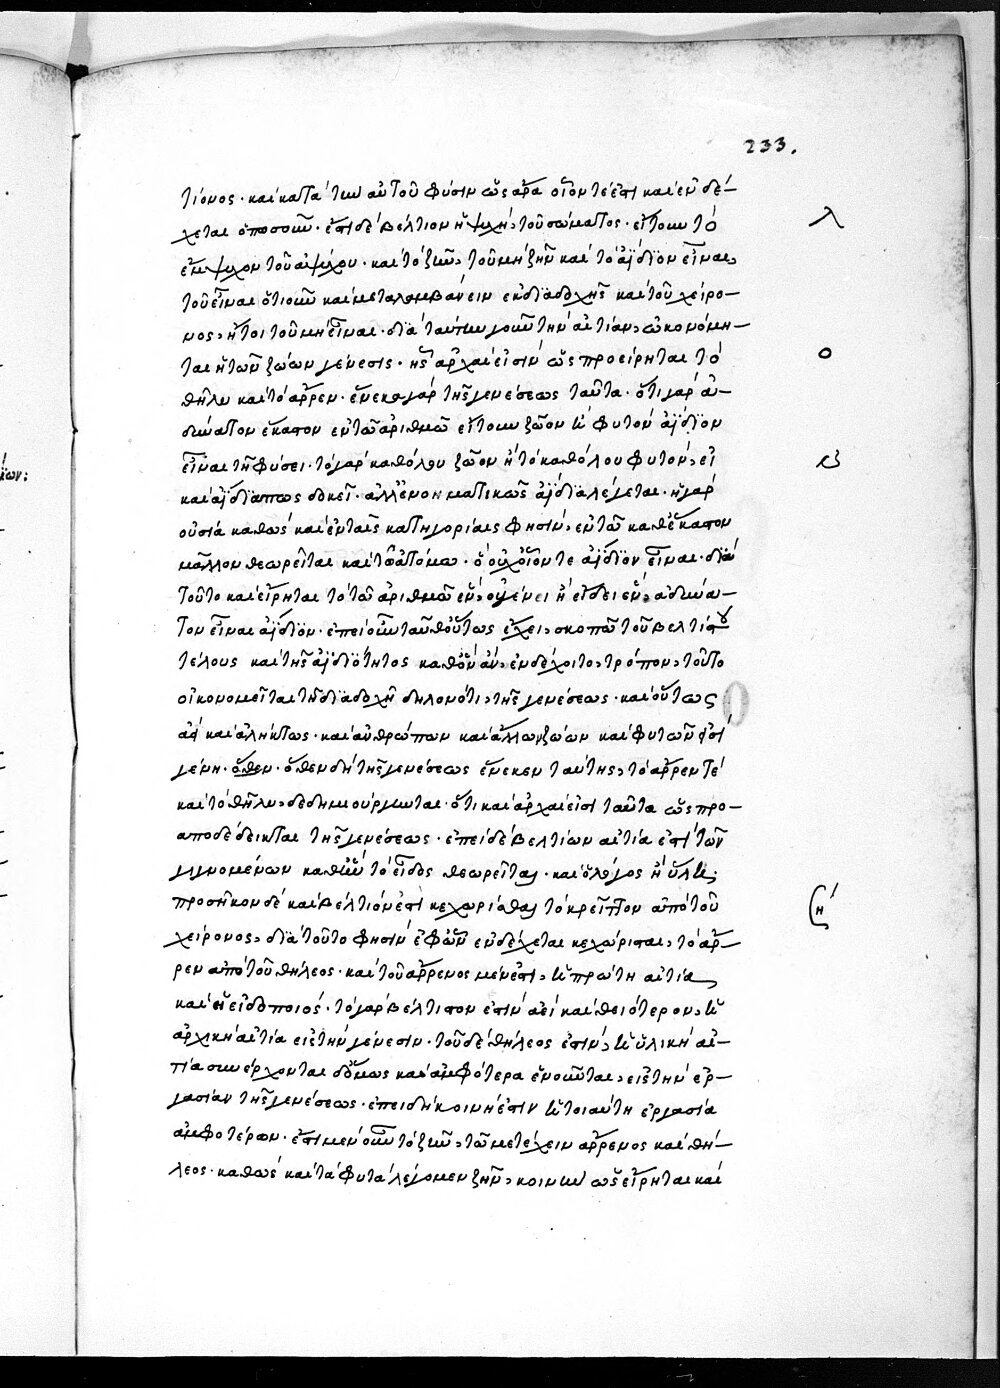 233.
τίονος· και κατα την αὐτοῦ φύσιν ὡς ἄρα οἷόν τέ ἐστι και ἐνδέ-
χεται ὁποσοῦν· ἔστι δὲ βέλτιον ἡ ψυχή, τοῦ σώματος· εἴτουν τὸ
ἔμψυχον τοῦ ἀψύχου· και τὸ ζῆν, τοῦ μὴ ζῆν και τὸ ἀΐδιον εἶναι,
τοῦ εἶναι ὁτιοῦν και μεταλαμβάνειν ἐκ διαδοχῆς και τοῦ χείρο-
νος, ἤτοι τοῦ μὴ εἶναι· διὰ ταύτην γοῦν τὴν αἰτίαν, ὠκονόμη-
ται ἡ τῶν ζώων γένεσις· ἧς ἀρχαί εἰσιν ὡς προείρηται τὸ
θῆλυ και τὸ ἄρρεν· ἕνεκα γὰρ τῆς γενέσεως ταῦτα· ὅτι γὰρ ἀ-
δύνατον ἕκαστον ἐν τῶ ἀριθμῶ εἴτουν ζῶον ἢ φυτὸν ἀΐδιον
εἶναι τῆ φύσει· τὸ γὰρ καθόλου ζῶον ἢ τὸ καθόλου φυτόν, εἰ
και ἀΐδιά πως δοκεῖ· ἀλλ' ὁμονηματικῶς ἀΐδια λέγεται· ἡ γὰρ
οὐσία καθὼς και ἐν ταῖς κατηγορίαις φησίν, ἐν τῶ καθέκαστον
μᾶλλον θεωρεῖται και τῶ ἀτόμω· ὃ οὐχ οἷόν τε ἀΐδιον εἶναι· διὰ
τοῦτο και εἴρηται τὸ τῶ ἀριθμῶ ἕν, οὐ γένει ἢ εἴδει ἕν, ἀδύνα-
τον εἶναι ἀΐδιον· ἐπεὶ οὖν ταῦθ' οὕτως ἔχει, σκοπῶ τοῦ βελτίου
τέλους και τῆς ἀϊδιότητος καθ' ὃν ἂν, ἐνδέχοιτο, τρόπον, τοῦτο
οἰκονομεῖται τῆ διαδοχῆ δηλονότι, τῆς γενέσεως· και οὕτως
ἀεὶ και ἀλήκτως· και ἀνθρώπων και ἄλλων ζώων και φυτῶν ἐστὶ
γένη· ὅθεν· ὅθεν δὴ τῆς γενέσεως ἕνεκεν ταύτης, τὸ ἄρρεν τὲ
και τὸ θῆλυ, δεδημιούργηνται· ὅτι και ἀρχαί εἰσι ταῦτα ὡς προ-
αποδέδεικται τῆς γενέσεως· ἐπεὶ δὲ βελτίων αἰτία ἐπὶ τῶν
γινομένων καθ' ἣν τὸ εἶδος θεωρεῖται· και ὁ λόγος ἢ ὕλη·
προσῆκον δὲ και βέλτιόν ἐστι κεχωρίσθαι τὸ κρεῖττον ἀπὸ τοῦ
χείρονος, διὰ τοῦτο φησὶν ἐφ' ὧν ἐνδέχεται κεχώρισται, τὸ ἄρ-
ρεν ἀπὸ τοῦ θήλεος· και τοῦ ἄρρενος μέν ἐστι, ἡ πρώτη αἰτία
και ἡ εἰδοποιός· τὸ γὰρ βέλτιστον ἐστὶν ἀεὶ και θειότερον, ἡ
ἀρχικὴ αἰτία εἰς τὴν γένεσιν· τοῦ δὲ θήλεος ἐστὶν, ἡ ὑλικὴ αἰ-
τία συνέρχονται δ' ὅμως και ἀμφότερα ἑνοῦνται, εἰς τὴν ἐρ-
γασίαν τῆς γενέσεως· ἐπειδὴ κοινή ἐστιν ἡ τοιαύτη ἐργασία
ἀμφοτέρων· ἔστι μὲν οὖν τὸ ζῆν, τῶ μετέχειν ἄρρενος και θή-
λεος· καθὼς και τὰ φυτὰ λέγομεν ζῆν, κοινὸν ὡς εἴρηται και